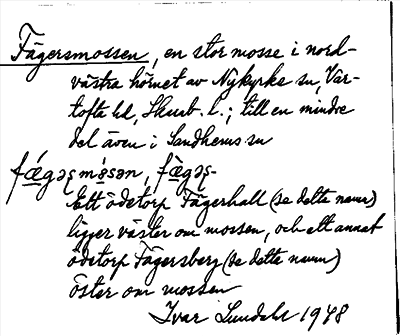 Fägersmossen, en stor mosse i nord-
västra hörnet av Nykyrke sn, Var-
tofta hd, Skarab. l.; till en mindre
del även i Sandhems sn
fǽgəʂmòsən, fǽgəʂ-
Ett ödetorp Fägerhall (se detta namn)
ligger väster om mossen, och ett annat
ödetorp Fägersberg (se detta namn)
öster om mossen
Ivar Lundahl 1948